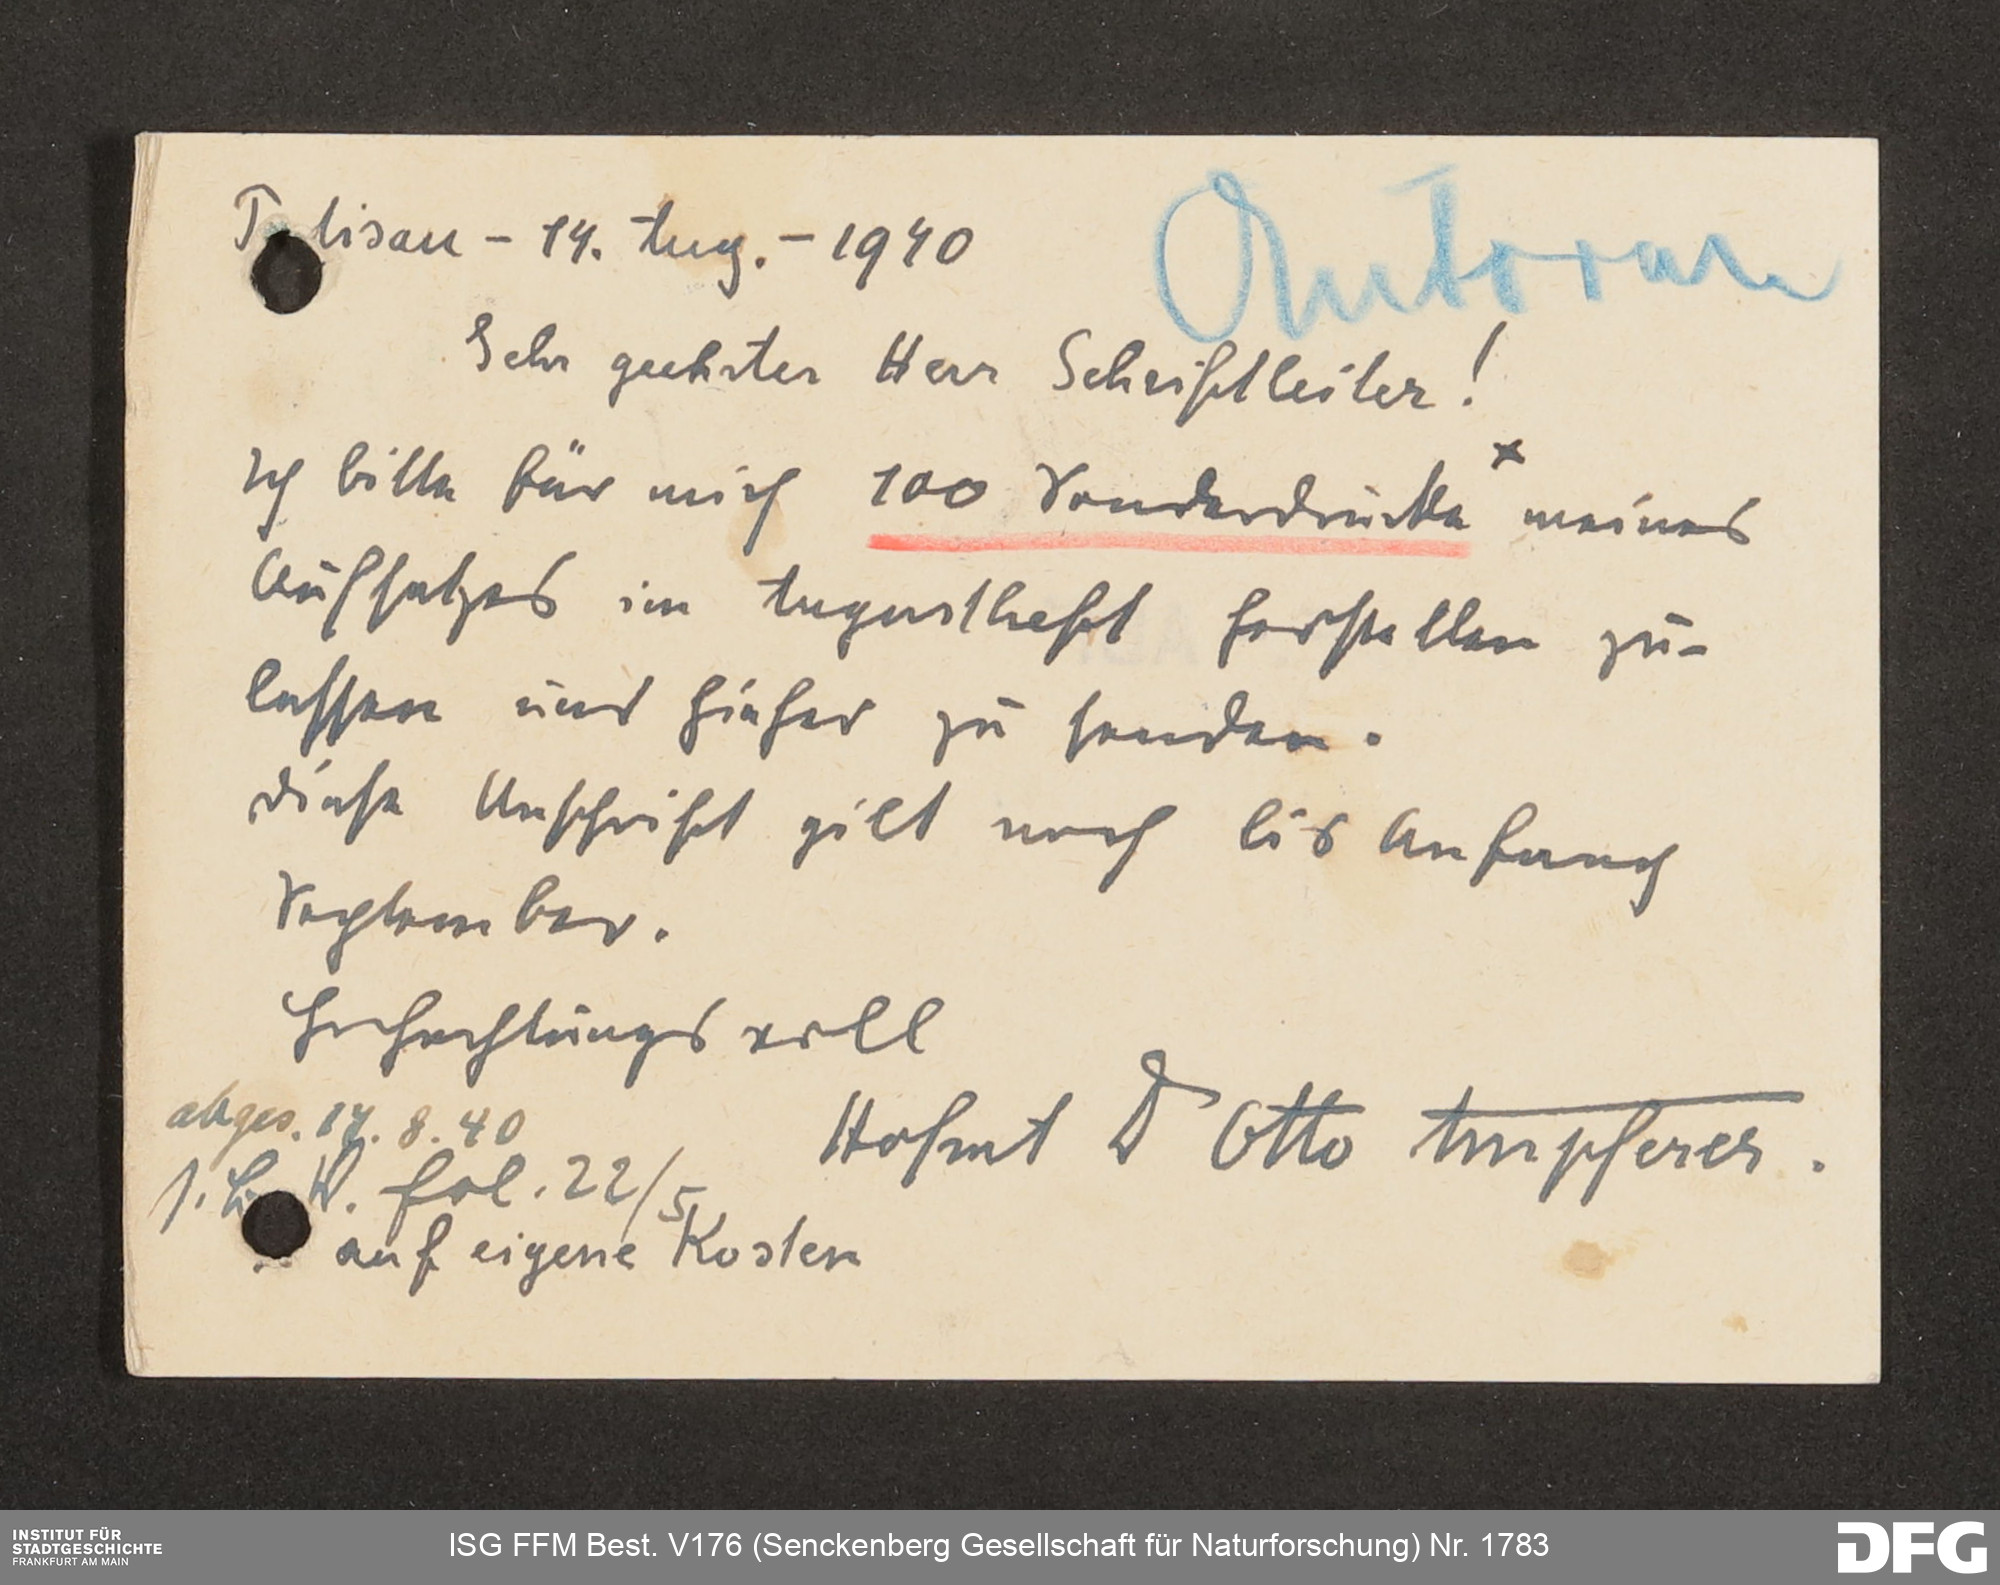 Pertisau - 14. Aug. - 1940
Autoren
Sehr geehrter Herr Schriftleiter!
Ich bitte für mich 100 Sonderdrucke x meines
Aufsatzes im Augustheft herstellen zu-
lassen und hieher zu senden.
Diese Anschrift gilt noch bis Anfang
September.
Hochachtungsvoll
abges. 17. 8. 40
Hofrat Dr Otto Ampferer.
fol. 22/5
auf eigene Kosten
INSTITUT FÜR
STADTGESCHICHTE
FRANKFURT AM MAIN
ISG FFM Best. V176 (Senckenberg Gesellschaft für Naturforschung) Nr. 1783
DFG